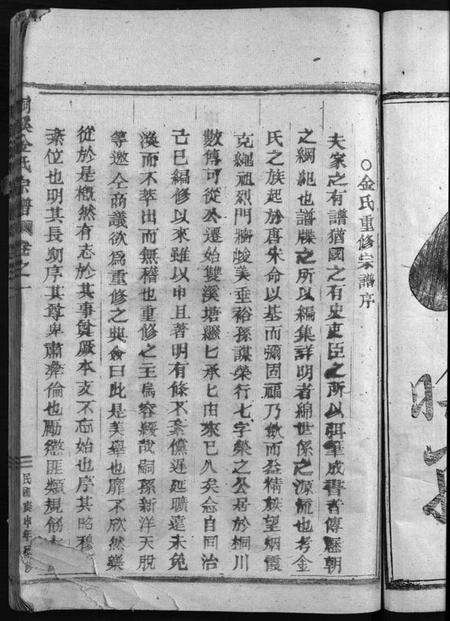 ○金氏重修宗譜序
夫家之有譜猶國之有史史臣之所以珥筆成書者傳歷朝
之綱紀也譜牒之所以編集詳明者綿世係之源流也考金
氏之族起於唐朱命以基而彌固禎乃猷而益精族望炳霞
克繩祖烈門牆峻美垂裕孫謀榮行七字榮之公居於桐川
數傳可從公遷始雙溪塘繼匕承匕由來已久矣念自同治
己巳編修以來雖以申且著明有條不紊儻遲延曠遠未免
渙而不萃出而無稽也重修之主烏容緩哉嗣孫新洋天脫
等邀仝商議欲為重修之典僉曰此是美舉也靡不欣然樂
從於是概然有志於其事貫厥本支不忘始也序其昭穆
紊位也明其長刻序其尊卑肅彝倫也勵懲匪類規
溪金氏宗譜 卷之一
民國庚申年